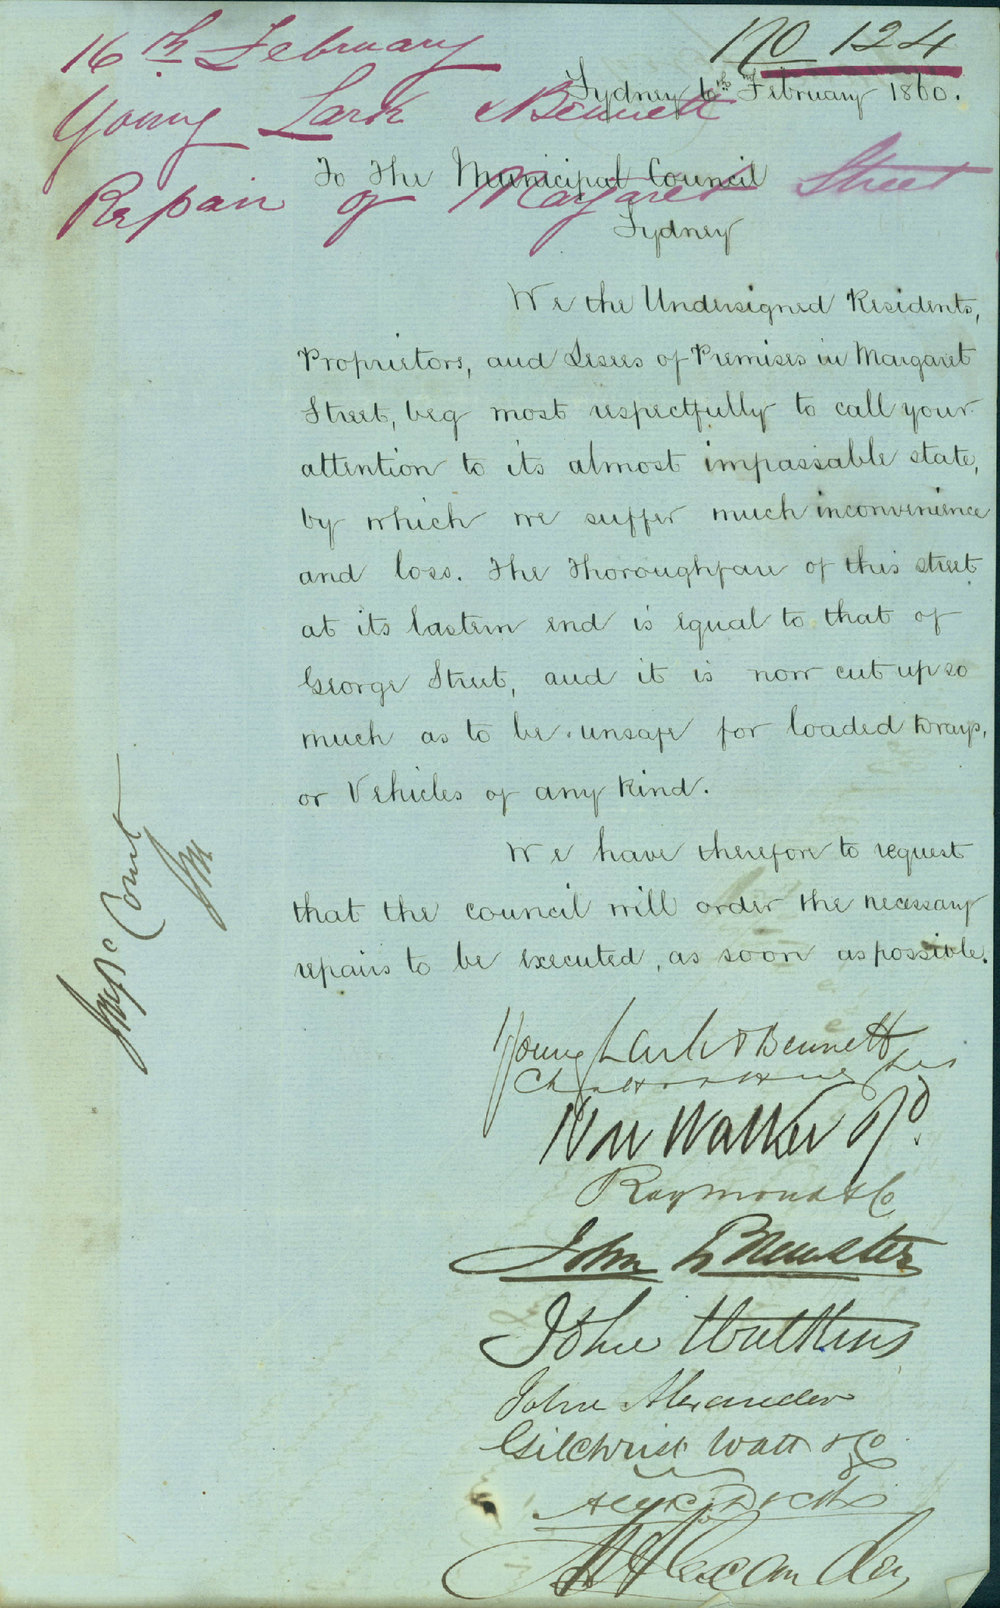 No 124
16th February
Young Lark & Bennett
Repair of Margaret Street
Sydney 16th February 1860.
To The Municipal Council
Sydney
We the Undersigned Residents,
Proprietors, and Lesees of Premises in Margaret
Street, beg most respectfully to call your
attention to its almost impassable state,
by which we suffer much inconvenience
and loss. The Thoroughfare of this street
at its Eastern end is equal to that of
George Street, and it is now cut up so
much as to be unsafe for loaded Drays,
or Vehicles of any kind.
We have therefore to request
that the council will order the necessary
repairs to be executed, as soon as possible.
Young Lark & Bennett
Wm Walker & Co.
Raymond & Co
John Brewster
John Watkins
John Alexander
Gilchrist Watt & Co
M Alexander